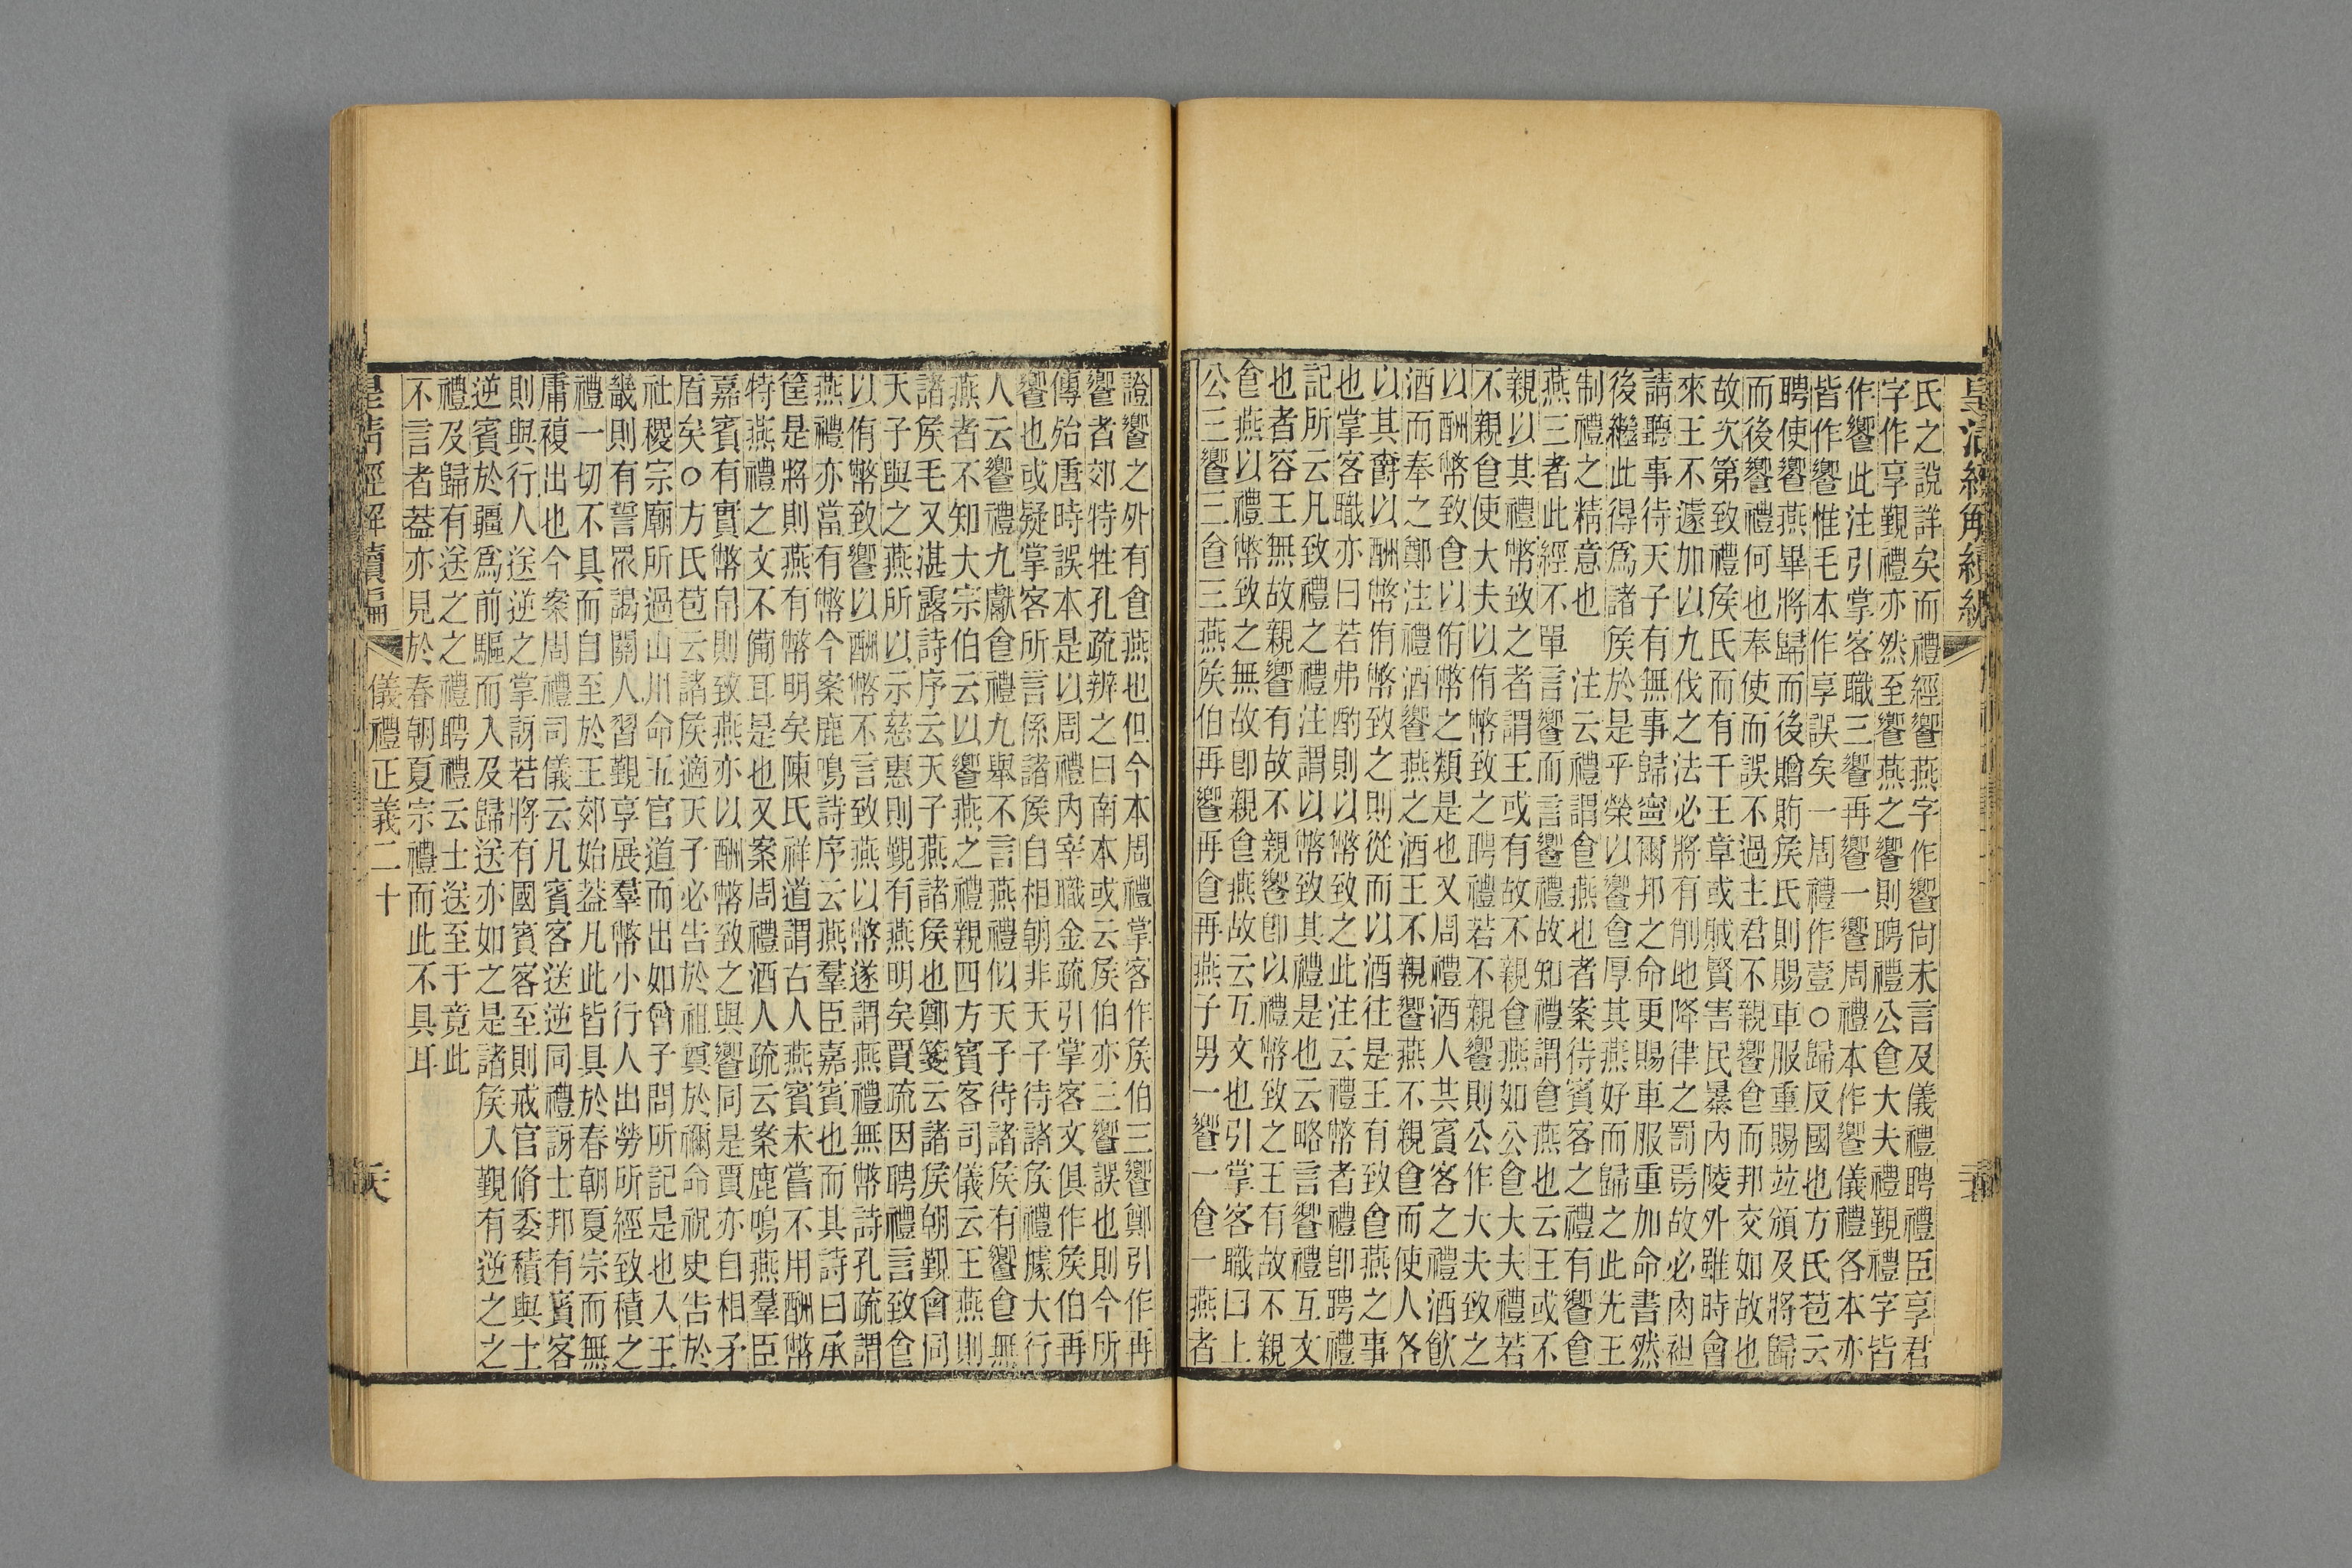 氏之說詳矣而禮經饗燕字作饗尙未言及儀禮聘禮臣享君
字作享覲禮亦然至饗燕之饗則聘禮公食大夫禮覲禮字皆
作饗此注引掌客職三饗再饗一饗周禮本作饗儀禮各本亦
皆作饗惟毛本作享誤矣一周禮作壹○歸反國也方氏苞云
聘使饗燕畢將歸而後贈賄矦氏則賜車服重賜竝頒及將歸
而後饗禮何也奉使而誤不過主君不親饗食而邦交如故也
故次第致禮矦氏而有干王章或賊賢害民暴內陵外雖時會
來王不遽加以九伐之法必將有削地降律之罰焉故必肉袒
請聽事待天子有無事歸寧爾邦之命更賜車服重加命書然
後繼此得爲諸矦於是乎榮以饗食厚其燕好而歸之此先王
制禮之精意也　注云禮謂食燕也者案待賓客之禮有饗食
燕三者此經不單言饗而言饗禮故知禮謂食燕也云王或不
親以其禮幣致之者謂王或有故不親食燕如公食大夫禮若
不親食使大夫以侑幣致之聘禮若不親饗則公作大夫致之
以酬幣致食以侑幣之類是也又周禮酒人共賓客之禮酒飲
酒而奉之鄭注禮酒饗燕之酒王不親饗燕不親食而使人各
以其爵以酬幣侑幣致之則從而以酒往是王有致食燕之事
也掌客職亦曰若弗酌則以幣致之此注云禮幣者禮卽聘禮
記所云凡致禮之禮注謂以幣致其禮是也云略言饗禮互文
也者容王無故親饗有故不親饗卽以禮幣致之王有故不親
食燕以禮幣致之無故卽親食燕故云互文也引掌客職曰上
公三饗三食三燕矦伯再饗再食再燕子男一饗一食一燕者
證饗之外有食燕也但今本周禮掌客作矦伯三饗鄭引作再
饗者郊特牲孔疏辨之曰南本或云矦伯亦三饗誤也則今所
傳殆唐時誤本是以周禮內宰職金疏引掌客文俱作矦伯再
饗也或疑掌客所言係諸矦自相朝非天子待諸矦禮據大行
人云饗禮九獻食禮九舉不言燕禮似天子待諸矦有饗食無
燕者不知大宗伯云以饗燕之禮親四方賓客司儀云王燕則
諸矦毛又湛露詩序云天子燕諸矦也鄭箋云諸矦朝覲會同
天子與之燕所以示慈惠則覲有燕明矣賈疏因聘禮言致食
以侑幣致饗以酬幣不言致燕以幣遂謂燕禮無幣詩孔疏謂
燕禮亦當有幣今案鹿鳴詩序云燕羣臣嘉賓也而其詩曰承
筐是將則燕有幣明矣陳氏祥道謂古人燕賓未嘗不用酬幣
特燕禮之文不備耳是也又案周禮酒人疏云案鹿鳴燕羣臣
嘉賓有實幣帛則致燕亦以酬幣致之與饗同是賈亦自相矛
盾矣○方氏苞云諸矦適天子必告於祖奠於禰命祝史告於
社稷宗廟所過山川命五官道而出如曾子問所記是也入王
畿則有誓眾謁關人習覲享展羣幣小行人出勞所經致積之
禮一切不具而自至於王郊始葢凡此皆具於春朝夏宗而無
庸複出也今案周禮司儀云凡賓客送逆同禮訝士邦有賓客
則與行人送逆之掌訝若將有國賓客至則戒官脩委積與士
逆賓於疆爲前驅而入及歸送亦如之是諸矦入覲有逆之之
禮及歸有送之之禮聘禮云士送至于竟此
不言者葢亦見於春朝夏宗禮而此不具耳
皇淸經解續編　儀禮正義二十